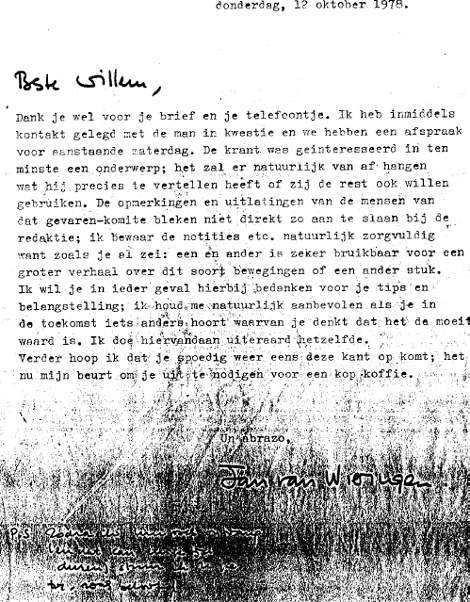 donderdag, 12 oktober 1978.
Beste Willem,
Dank je wel voor je brief en je telefoontje. Ik heb inmiddels
kontakt gelegd met de man in kwestie en we hebben een afspraak
voor aanstaande zaterdag. De krant was geinteresseerd in ten
minste een onderwerp; het zal er natuurlijk van af hangen
wat hij precies te vertellen heeft of zij de rest ook willen
gebruiken. De opmerkingen en uitlatingen van de mensen van
dat gevaren-komite bleken niet direkt zo aan te slaan bij de
redaktie; ik bewaar de notities etc. natuurlijk zorgvuldig
want zoals je al zei: een en ander is zeker bruikbaar voor een
groter verhaal over dit soort bewegingen of een ander stuk.
Ik wil je in ieder geval hierbij bedanken voor je tips en
belangstelling; ik houd me natuurlijk aanbevolen als je in
de toekomst iets anders hoort waarvan je denkt dat het de moeit
waard is. Ik doe hiervandaan uiteraard hetzelfde.
Verder hoop ik dat je spoedig weer eens deze kant op komt; het
nu mijn beurt om je uit te nodigen voor een kop koffie.
Un abrazo,
Jan van Wieringen
P.S.